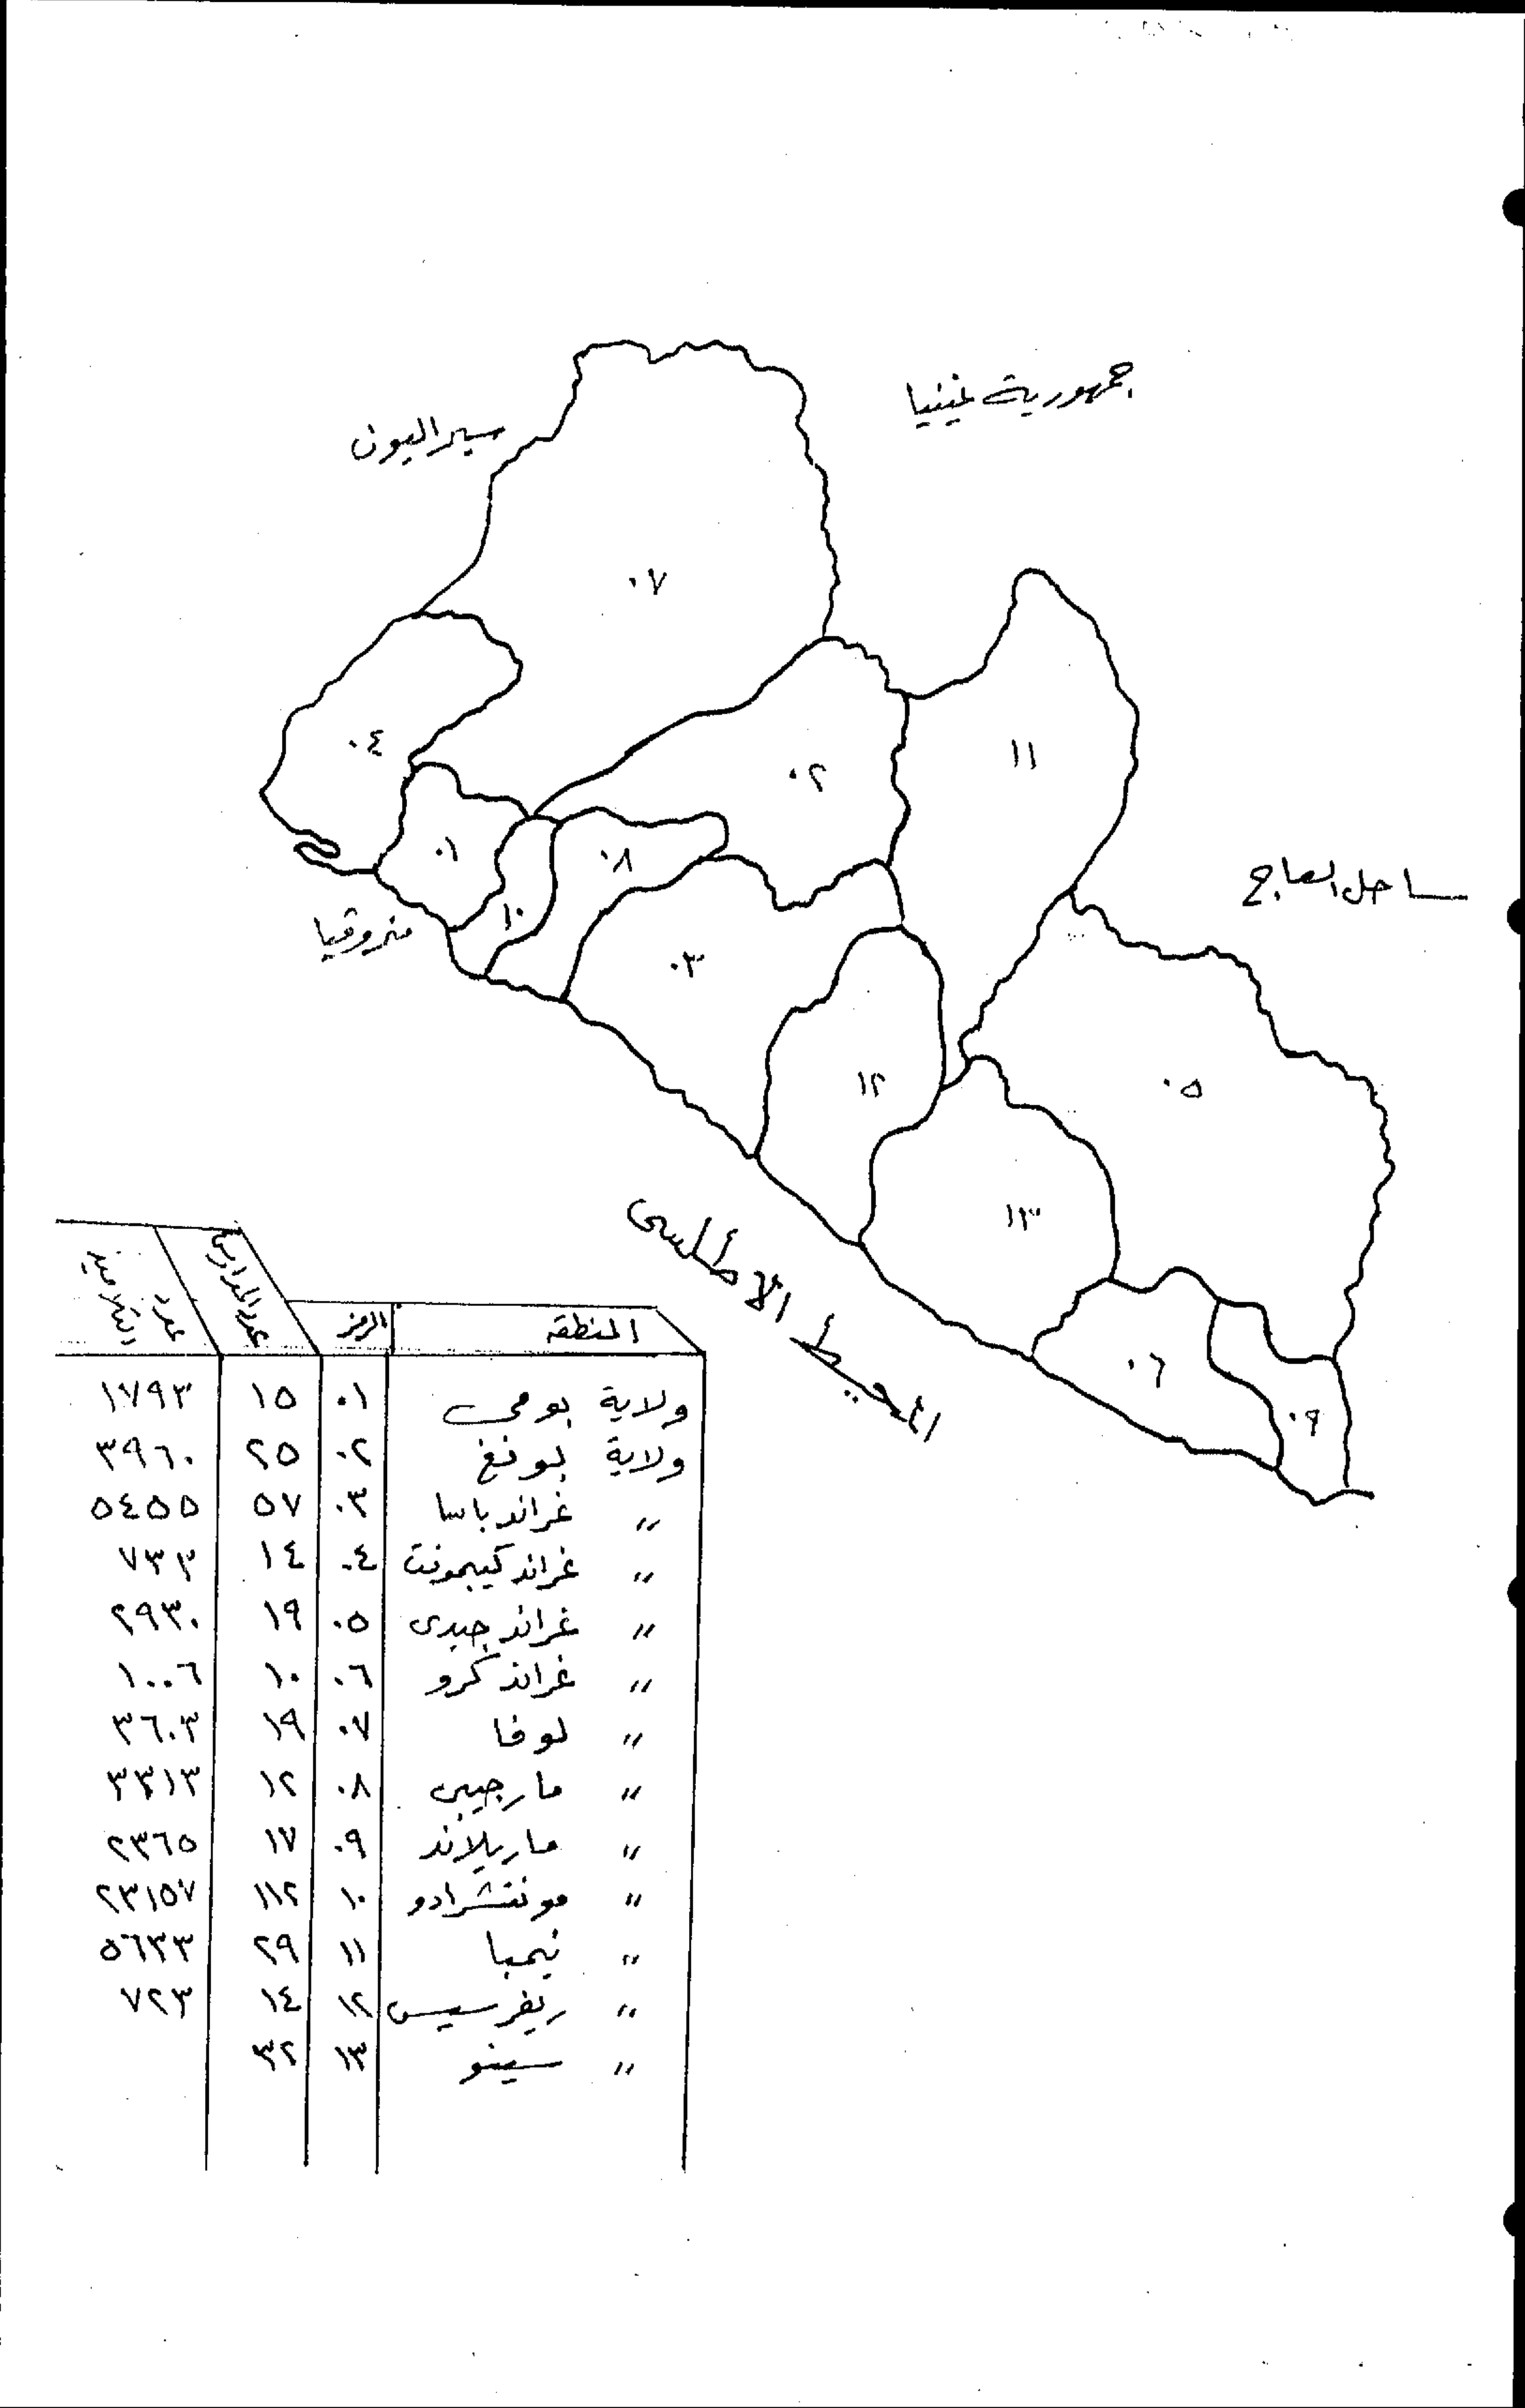 جمهورية غينيا
سيراليون
٠٧
٠٤
٠٢
١١
٠١
٠٨
ساحل العاج
١٠
منروفيا
٠٣
١٢
٠٥
١٣
المحيط الأطلسى
٠٦
٠٩
المنطقة الرمز عدد المدارس
ولاية بومى ٠١ ١٥ ١٧٩٣
ولاية بونغ ٠٢ ٢٥ ٣٩٦٠
" غراند باسا ٠٣ ٥٧ ٥٤٥٥
" غراند كيبمونت ٠٤ ١٤ ٧٣٣
" غراند جيدى ٠٥ ١٩ ٢٩٣٠
" غراند كرو ٠٦ ١٠ ١٠٠٦
" لوفا ٠٧ ١٩ ٣٦٠٣
" مارجيبى ٠٨ ١٢ ٣٣١٣
" ماريلاند ٠٩ ١٧ ٢٣٦٥
" مونتشرادو ١٠ ١١٢ ٢٣١٥٧
" نيمبا ١١ ٢٩ ٥٦٣٣
" ريفرسيس ١٢ ١٤ ٧٢٣
" سينو ١٣ ٣٢